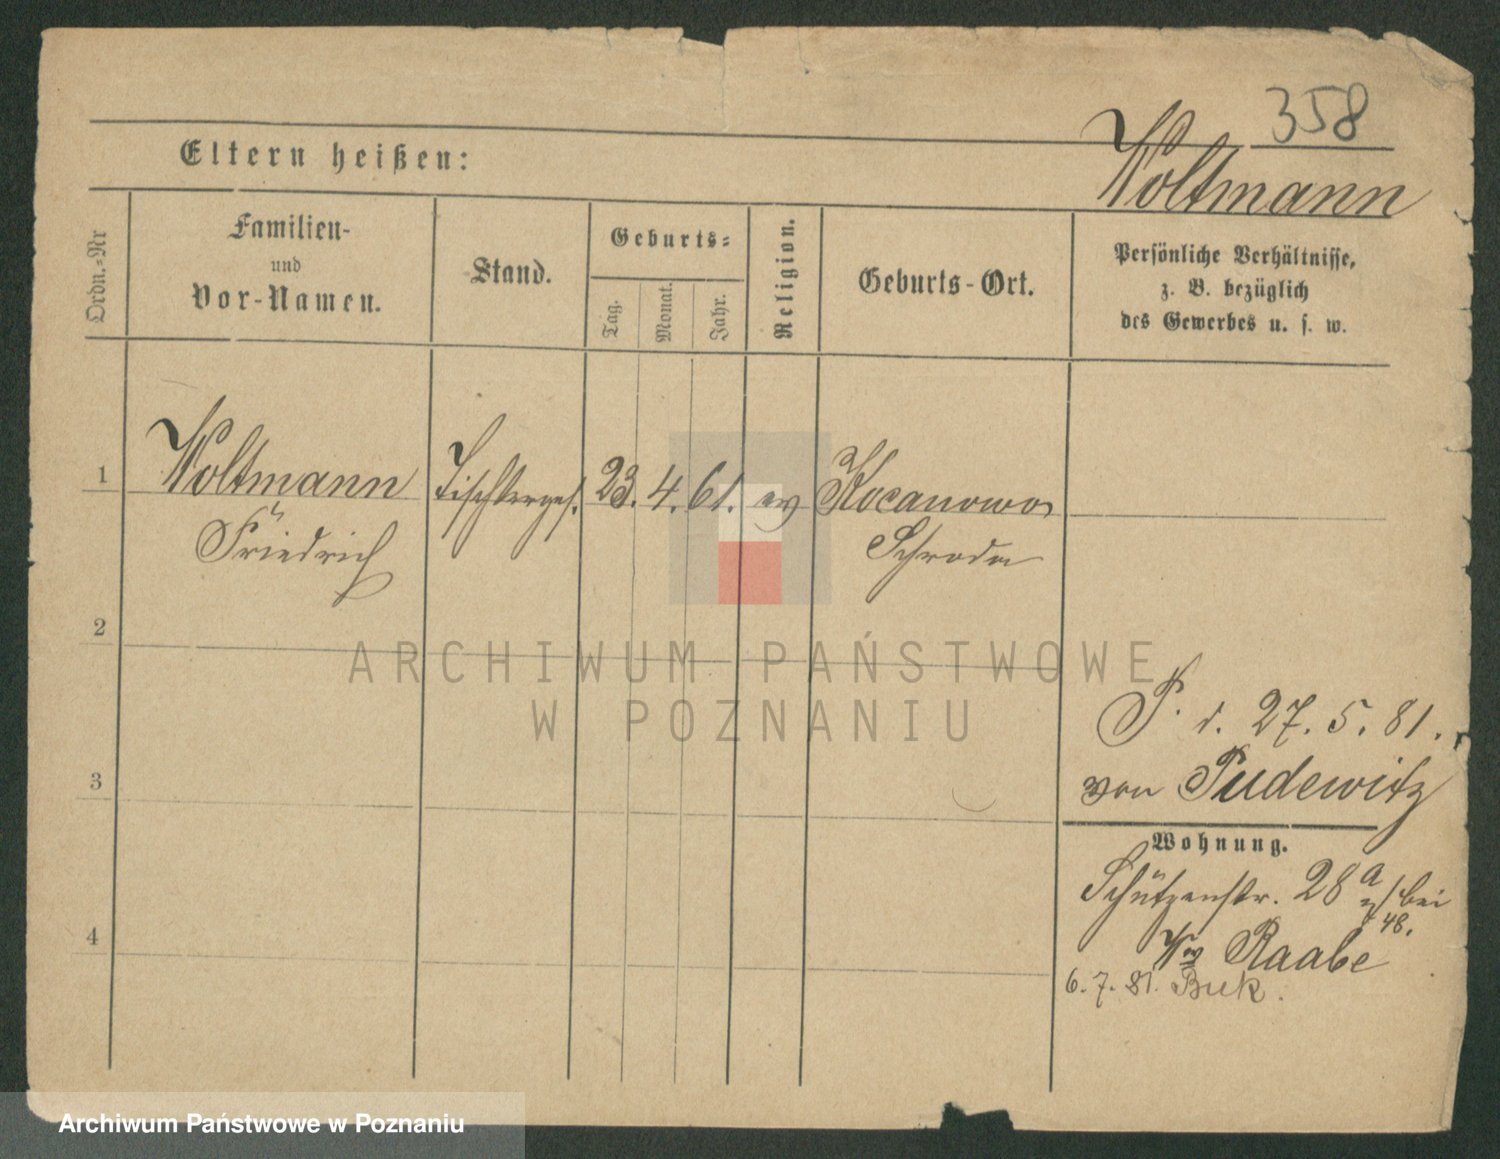 358
Woltmann
Eltern heißen:
Ordn.-Nr
Familien-
und
Vor-Namen.
Stand.
Geburts-
Tag.
Monat.
Jahr.
Religion.
Geburts-Ort.
Persönliche Verhältnisse,
z. B. bezüglich
des Gewerbes u. s. w.
1
Woltmann Tischlerges. 23. 4. 61. ev Kocanowo
Friedrich Schroda
2
3
4
P. d. 27. 5. 81.
von Pudewitz
Wohnung.
Schützenstr. 28 a bei
48.
Raabe
6. 7. 81. Buk.
ARCHIWUM PAŃSTWOWE
W POZNANIU
Archiwum Państwowe w Poznaniu